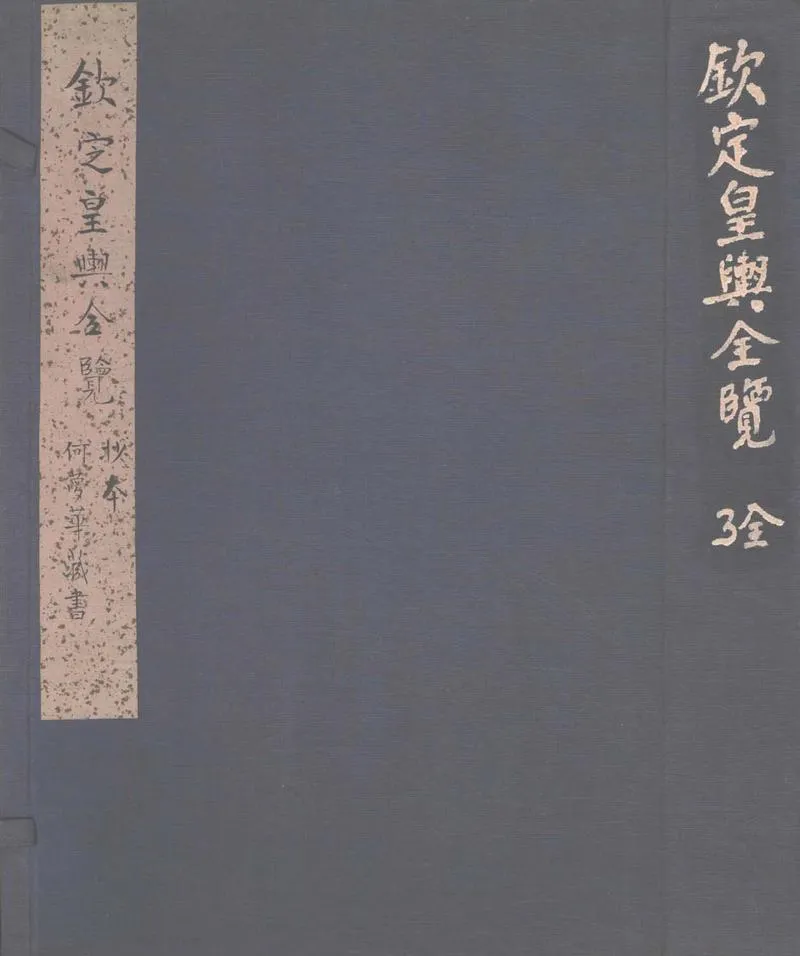 欽定皇輿全覽
全
欽定皇輿全覽
抄本
何夢華藏書